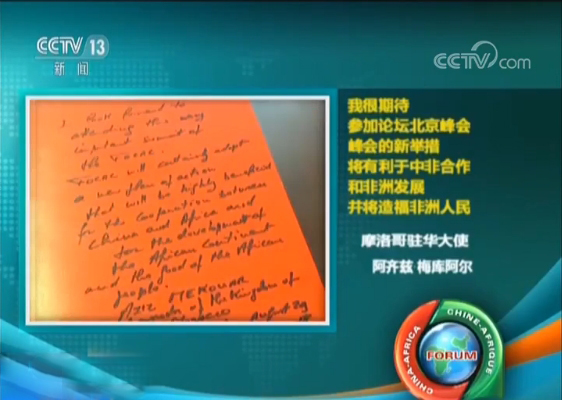 CCTV 13
新闻
CCTV com
I look forward to
attending this very
important summit of
the FOCAC.
FOCAC will certainly adopt
a new plan of action
that will be highly beneficial
for the cooperation between
China and Africa and
for the development of
the African Continent
and the good of the African
people.
AZIZ MEKOUAR
of the Kingdom of
August 29
我很期待
参加论坛北京峰会
峰会的新举措
将有利于中非合作
和非洲发展
并将造福非洲人民
摩洛哥驻华大使
阿齐兹 梅库阿尔
CHINA-AFRICA
CHINE-AFRIQUE
FORUM